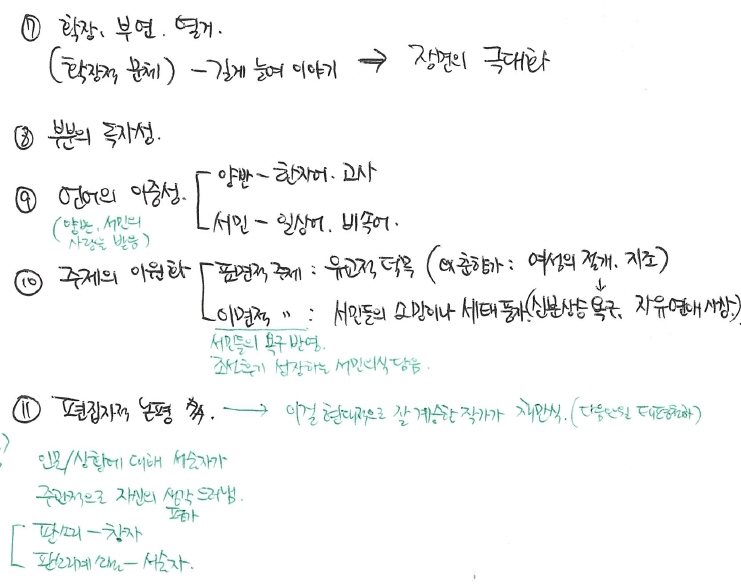 ⑦ 확장, 부연, 열거.
(확장적 문체) - 길게 늘여 이야기 → 장면의 극대화
⑧ 부분의 독자성.
⑨ 언어의 이중성. 양반 - 한자어, 고사
서민 - 일상어, 비속어.
(양반, 서민의
사랑을 받음)
⑩ 주제의 이원화 표면적 주제 : 유교적 덕목 (ex 춘향가 : 여성의 절개, 지조)
이면적 〃 : 서민들의 소망이나 세태 풍자. (신분상승 욕구, 자유연애 사상.)
서민들의 욕구 반영.
조선후기 성장하는 서민의식 담음.
⑪ 편집자적 논평 → 이걸 현대적으로 잘 계승한 작가가 채만식. (태평천하)
인물/상황에 대해 서술자가
주관적으로 자신의 생각 드러냄.
평가
판소리 - 창자
판소리계 소설 - 서술자.